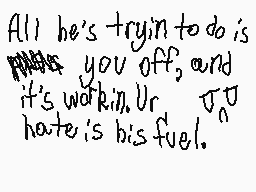 All he's tryin to do is
you off, and
it's workin. Ur
hate is his fuel.